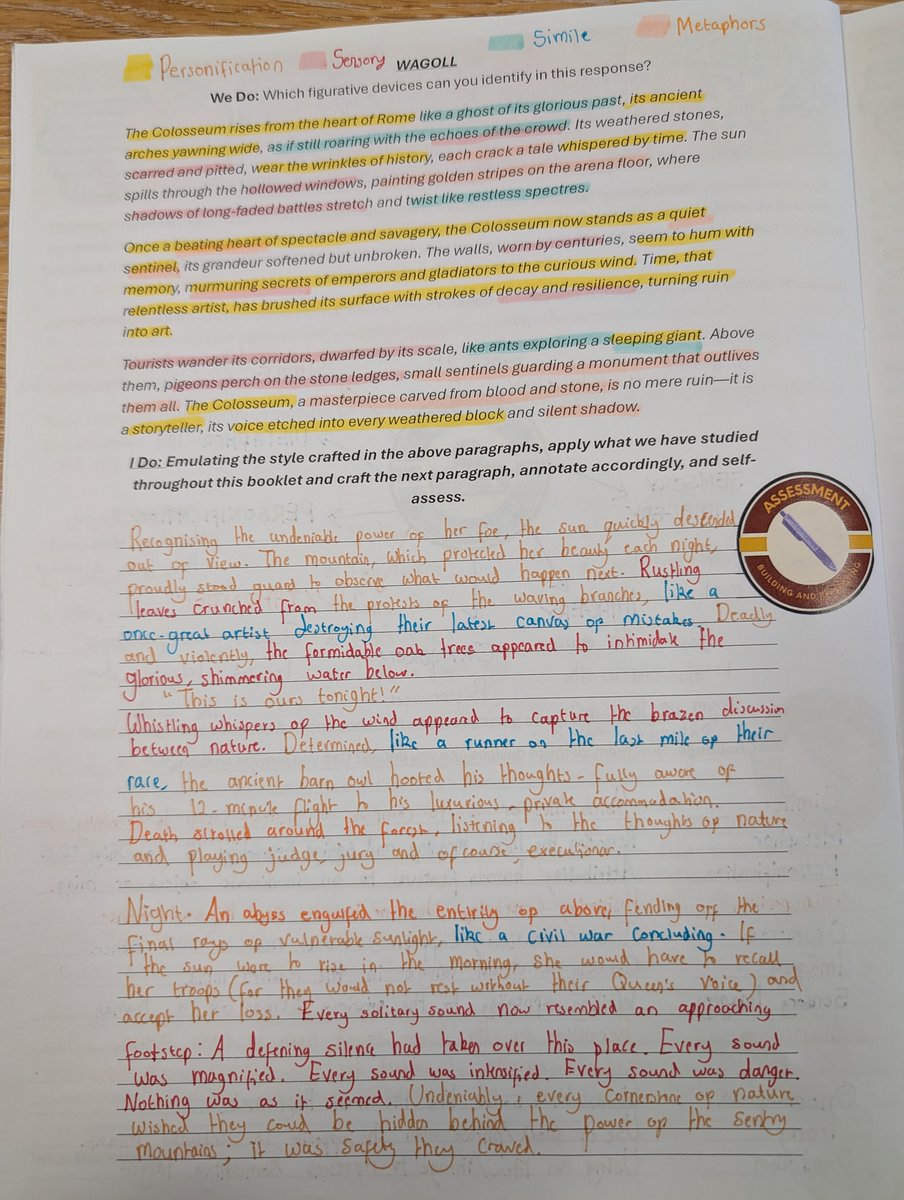 Personification Sensory WAGOLL Simile Metaphors
We Do: Which figurative devices can you identify in this response?
The Colosseum rises from the heart of Rome like a ghost of its glorious past, its ancient
arches yawning wide, as if still roaring with the echoes of the crowd. Its weathered stones,
scarred and pitted, wear the wrinkles of history, each crack a tale whispered by time. The sun
spills through the hollowed windows, painting golden stripes on the arena floor, where
shadows of long-faded battles stretch and twist like restless spectres.
Once a beating heart of spectacle and savagery, the Colosseum now stands as a quiet
sentinel, its grandeur softened but unbroken. The walls, worn by centuries, seem to hum with
memory, murmuring secrets of emperors and gladiators to the curious wind. Time, that
relentless artist, has brushed its surface with strokes of decay and resilience, turning ruin
into art.
Tourists wander its corridors, dwarfed by its scale, like ants exploring a sleeping giant. Above
them, pigeons perch on the stone ledges, small sentinels guarding a monument that outlives
them all. The Colosseum, a masterpiece carved from blood and stone, is no mere ruin—it is
a storyteller, its voice etched into every weathered block and silent shadow.
I Do: Emulating the style crafted in the above paragraphs, apply what we have studied
throughout this booklet and craft the next paragraph, annotate accordingly, and self-
assess.
ASSESSMENT
BUILDING AND
Recognising the undeniable power of her foe, the sun quickly descended
out of view. The mountain, which protected her beauty each night,
proudly stood guard to observe what would happen next. Rustling
leaves crunched from the protests of the waving branches, like a
once-great artist destroying their latest canvas of mistakes. Deadly
and violently, the formidable oak trees appeared to intimidate the
glorious, shimmering water below.
"This is ours tonight!"
Whistling whispers of the wind appeared to capture the brazen discussion
between nature. Determined, like a runner on the last mile of their
race, the ancient barn owl hooted his thoughts - fully aware of
his 12-minute flight to his luxurious, private accommodation.
Death strolled around the forest, listening to the thoughts of nature
and playing judge, jury and of course, executioner.
Night. An abyss engulfed the entirity of above, fending off the
final rays of vulnerable sunlight, like a civil war concluding. If
the sun were to rise in the morning, she would have to recall
her troops (for they would not rest without their Queen's voice) and
accept her loss. Every solitary sound now resembled an approaching
footstep: A defening silence had taken over this place. Every sound
was magnified. Every sound was intensified. Every sound was danger.
Nothing was as it seemed. Undeniably, every cornerstone of nature
wished they could be hidden behind the power of the sentry
mountains; it was safety they craved.